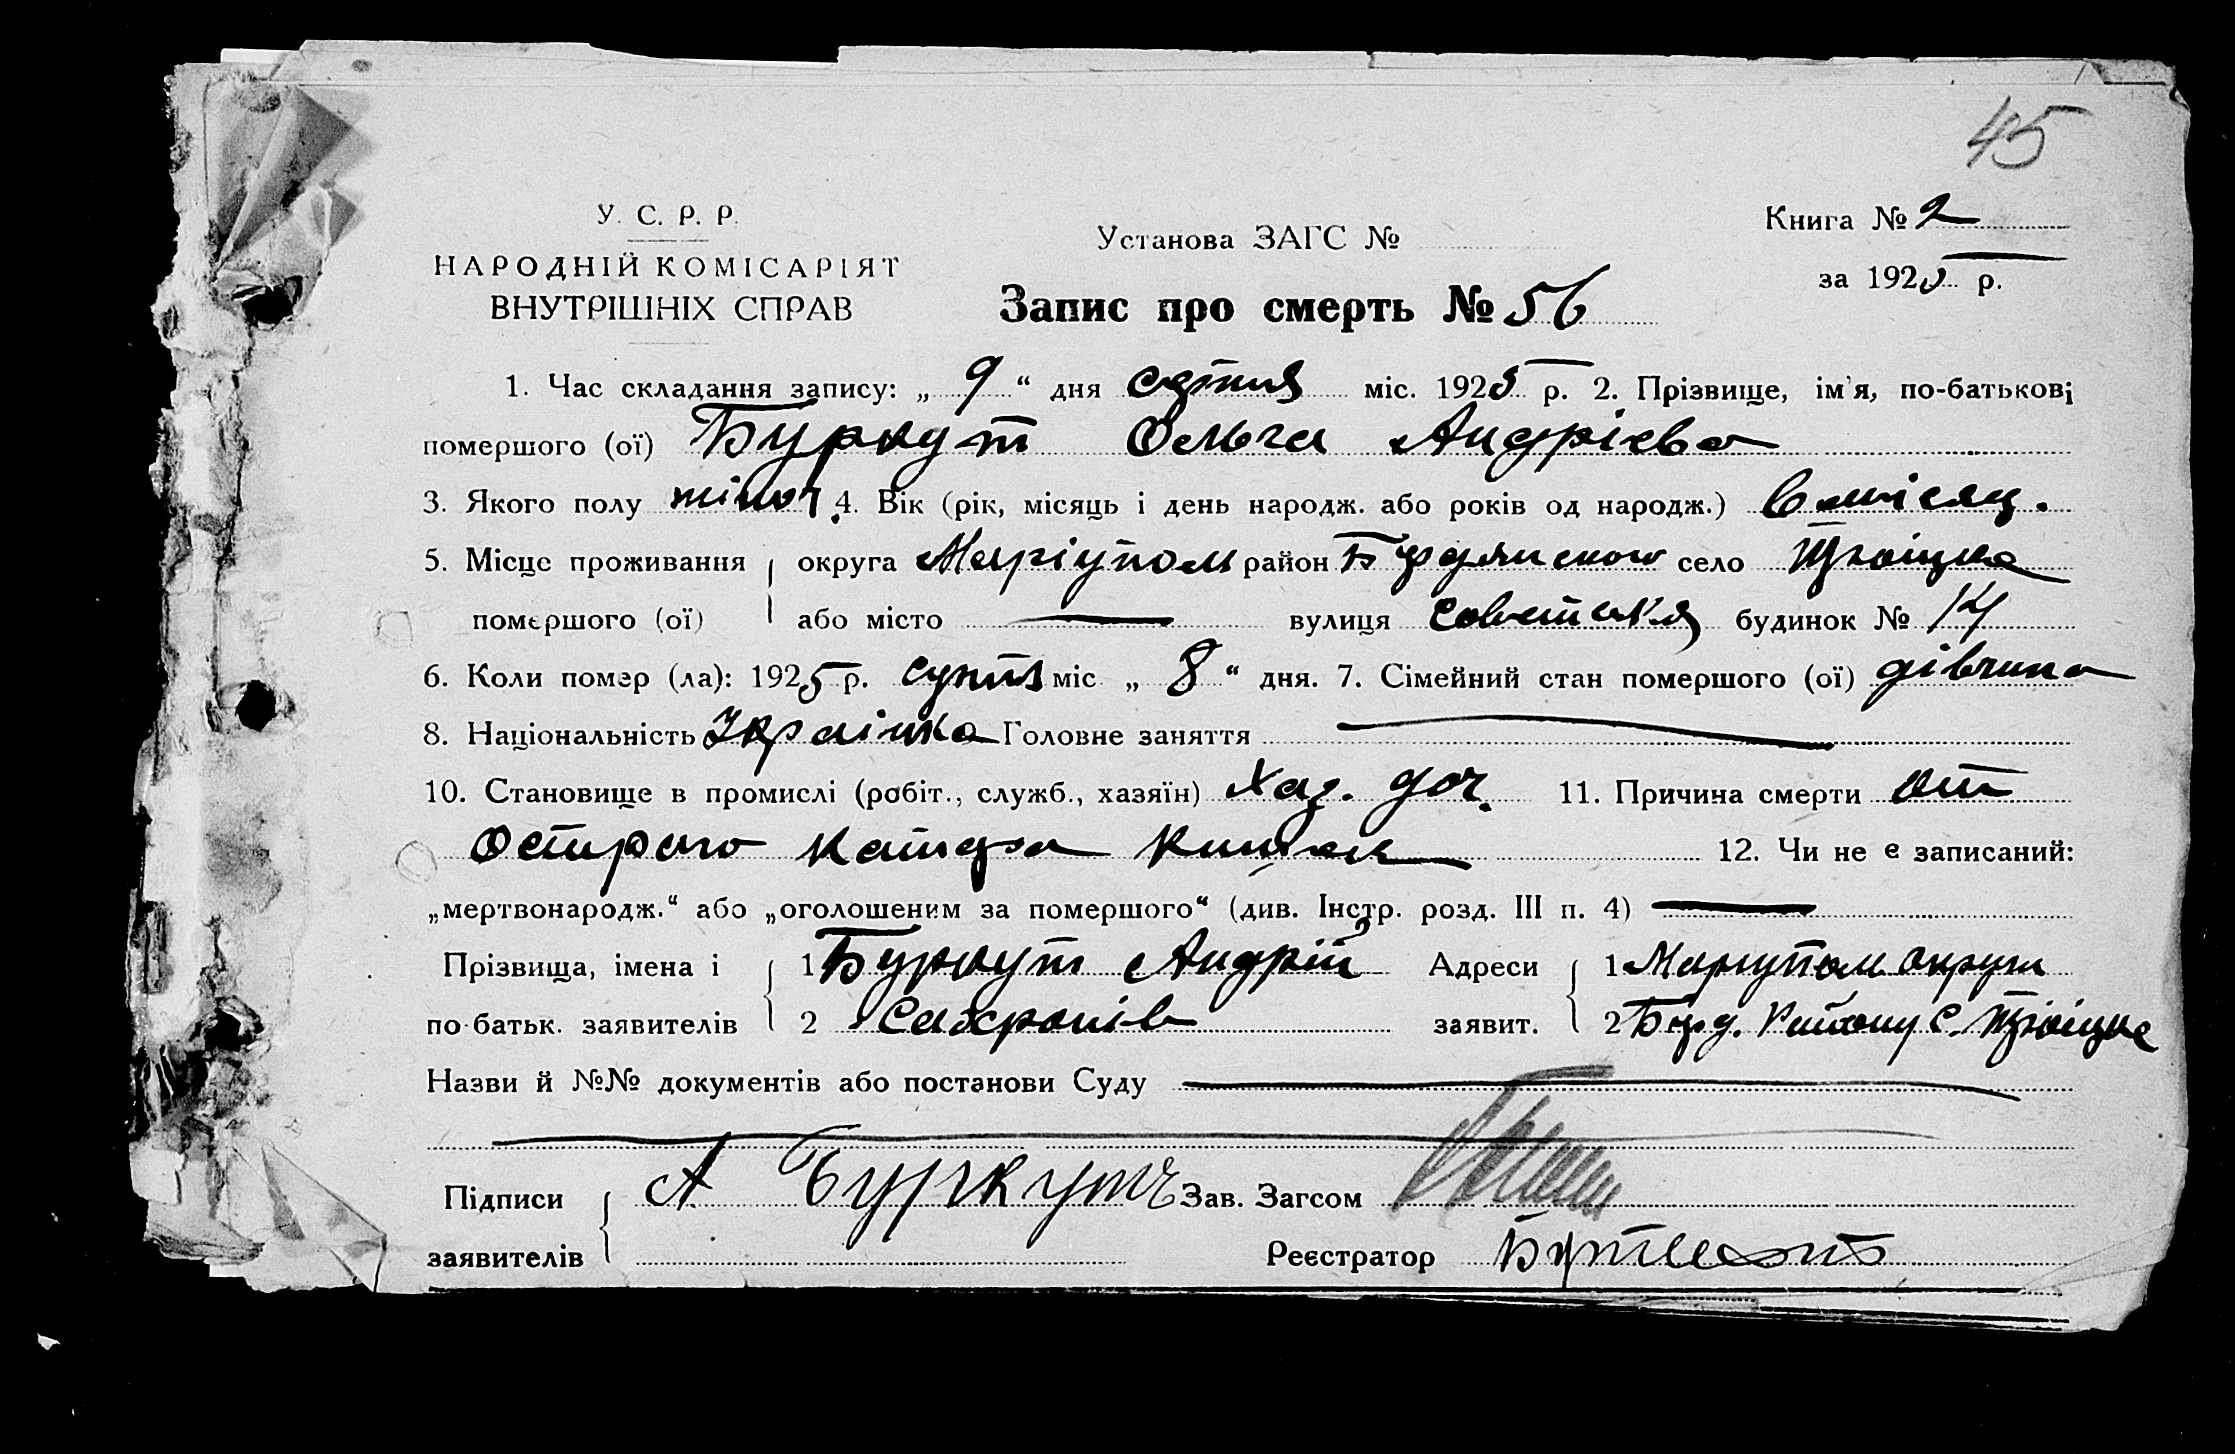 45
У. С. Р. Р.
НАРОДНІЙ КОМІСАРІЯТ
ВНУТРІШНІХ СПРАВ
Установа ЗАГС №
Книга № 2
за 1925 р.
Запис про смерть № 56
1. Час складання запису: „ 9 “ дня міс. 1925 р. 2. Прізвище, ім'я, по-батькові
помершого (ої) Буркут Ольга Андрієва
3. Якого полу жіноч. 4. Вік (рік, місяць і день народж. або років од народж.) 6 місяц.
5. Місце проживання округа Маріупол район Бердянсков село Троіцка
помершого (ої) або місто — вулиця Советская будинок № 14
6. Коли помер (ла): 1925 р. міс „ 8 “ дня. 7. Сімейний стан помершого (ої) дівчина
8. Національність Украінка Головне заняття —
10. Становище в промислі (робіт., служб., хазяїн) Хаз. доч. 11. Причина смерти от
Острого катара 12. Чи не є записаний:
„мертвонародж.“ або „оголошеним за помершого“ (див. Інстр. розд. III п. 4) —
Прізвища, імена і 1 Буркут Андрій Адреси 1 Мариупол округи
по-батьк. заявителів 2 Сафронів заявит. 2 Берд. Району с. Троіцке
Назви й №№ документів або постанови Суду —
Підписи А Буркут Зав. Загсом
заявителів Реєстратор